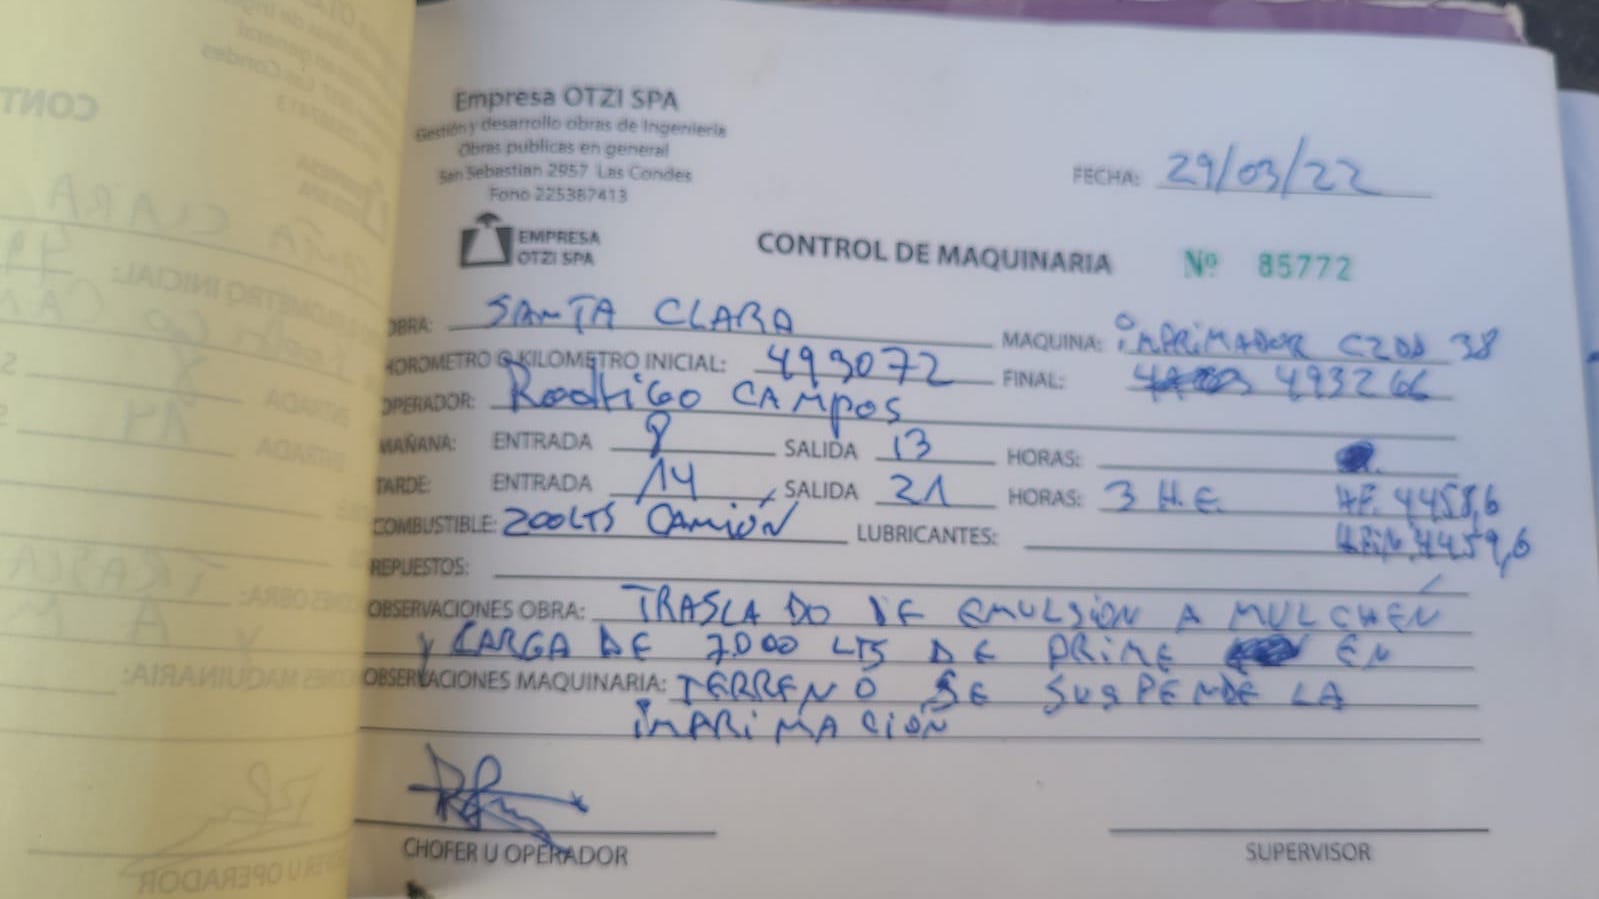 Empresa OTZI SPA
Gestión y desarrollo obras de Ingeniería
Obras publicas en general
San Sebastian 2957 Las Condes
Fono 225387413
FECHA: 29/03/22
EMPRESA
OTZI SPA
CONTROL DE MAQUINARIA Nº 85772
OBRA: SANTA CLARA MAQUINA: IMPRIMADOR 38
HOROMETRO O KILOMETRO INICIAL: 493072 FINAL: 493266
OPERADOR: Rodrigo CAMPOS
MAÑANA: ENTRADA 8 SALIDA 13 HORAS:
TARDE: ENTRADA 14 SALIDA 21 HORAS: 3 H.E. 4458,6
COMBUSTIBLE: 200LTS CAMIÓN LUBRICANTES: 4459,6
REPUESTOS:
OBSERVACIONES OBRA: TRASLADO DE EMULSIÓN A MULCHÉN
Y CARGA DE 7.000 LTS DE PRIME EN
OBSERVACIONES MAQUINARIA: TERRENO SE SUSPENDE LA
IMPRIMACIÓN
CHOFER U OPERADOR SUPERVISOR